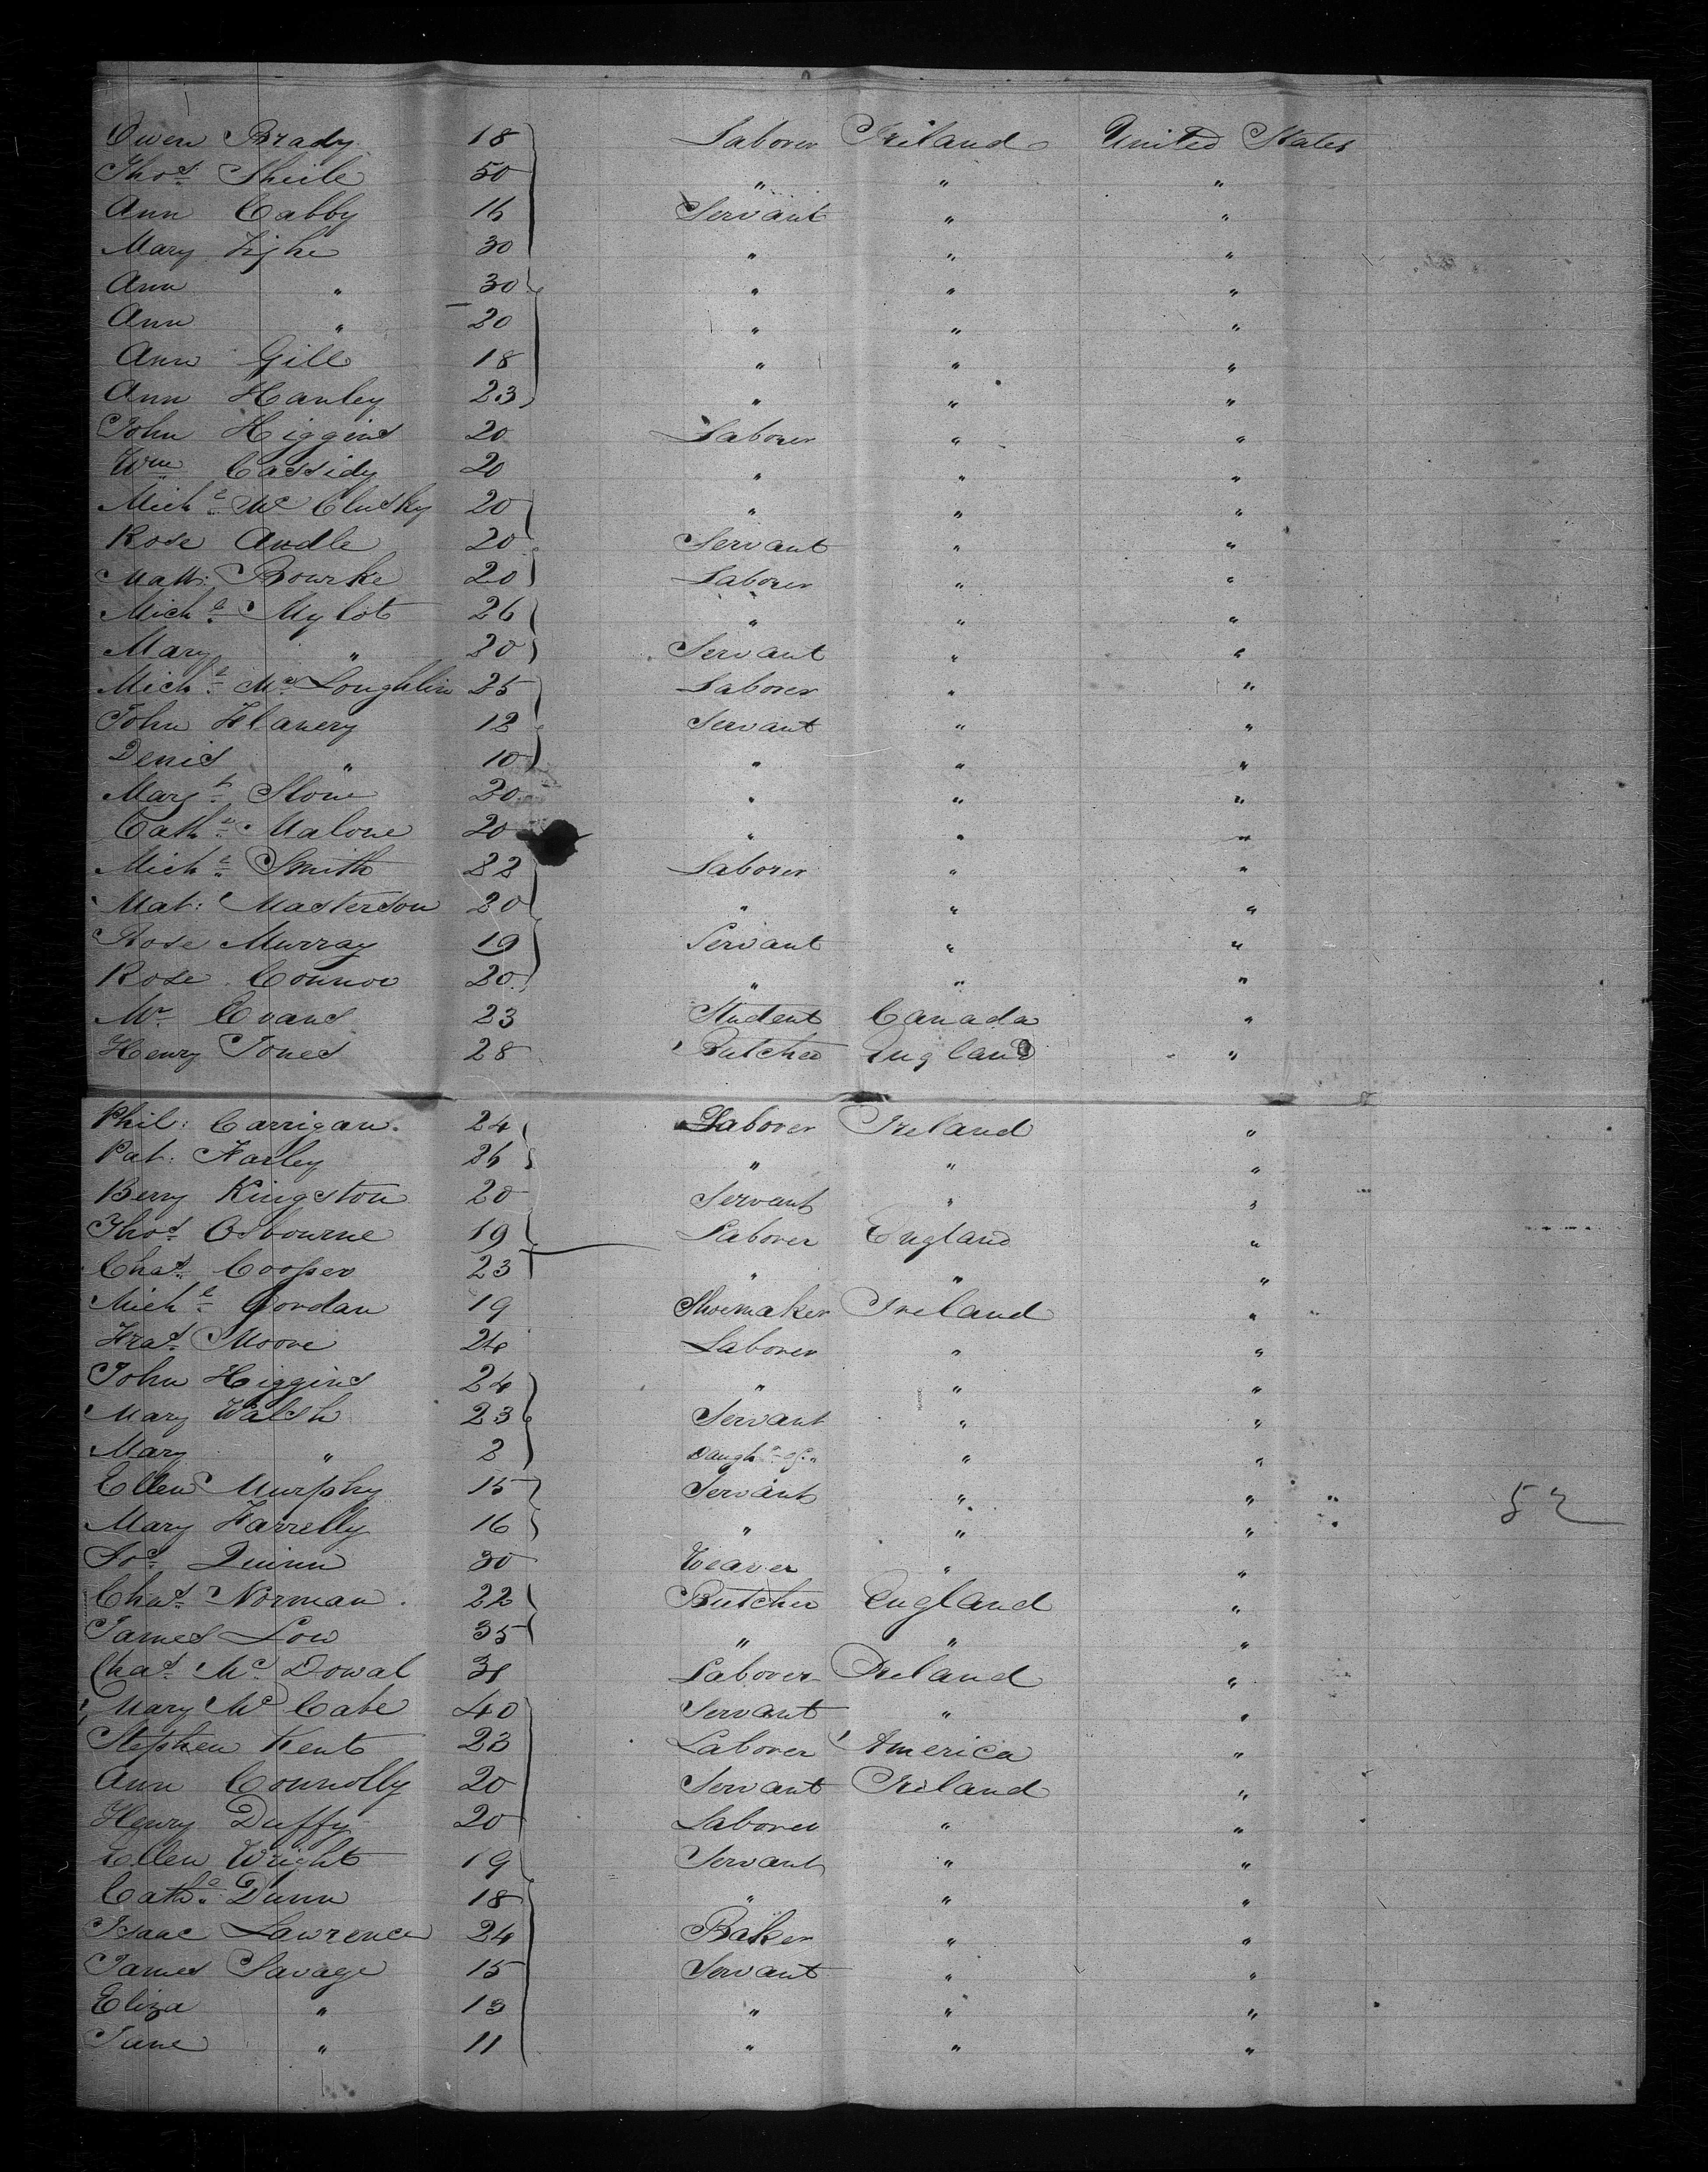 Owen Brady 18 Laborer Ireland United States
Thos Shiele 50 " " "
Ann Cabby 16 Servant " "
Mary Tighe 30 " " "
Ann " 30 " " "
Ann " 20 " " "
Ann Gill 18 " " "
Ann Hanley 23 " " "
John Higgins 20 Laborer " "
Wm Cassidy 20 " " "
Michl McClusky 20 " " "
Rose Caudle 20 Servant " "
Matt: Bourke 20 Laborer " "
Michl Mylot 26 " " "
Mary " 20 Servant " "
Michl McLoughlin 25 Laborer " "
John Flanery 12 Servant " "
Denis " 10 " " "
Margt Stone 20 " " "
Cathe Malone 20 " " "
Michl Smith 22 Laborer " "
Mat: Masterson 20 " " "
Rose Murray 19 Servant " "
Rose Connor 20 " " "
Mr Evans 23 Student Canada "
Henry Jones 28 Butcher England "
Phil: Carrigan 24 Laborer Ireland "
Pat: Farley 26 " " "
Berry Kingston 20 Servant " "
Thos Osbourne 19 Laborer England "
Chas Cooper 23 " " "
Michl Gordan 19 Shoemaker Ireland "
Fras Moore 24 Laborer " "
John Higgins 24 " " "
Mary Walsh 23 Servant " "
Mary " 2 Daughr of " " "
Ellen Murphy 15 Servant " "
Mary Farrelly 16 " " "
Jos Quinn 30 Weaver " "
Chas Norman 22 Butcher England "
James Low 35 " " "
Chas McDowal Laborer Ireland "
Mary McCabe 40 Servant " "
Stephen Kent 23 Laborer America "
Ann Connolly 20 Servant Ireland "
Henry Duffy 20 Laborer " "
Ellen Wright 19 Servant " "
Cathe Dunn 18 " " "
Isaac Lawrence 24 Baker " "
James Savage 15 Servant " "
Eliza " 13 " " "
Jane " 11 " " "
52